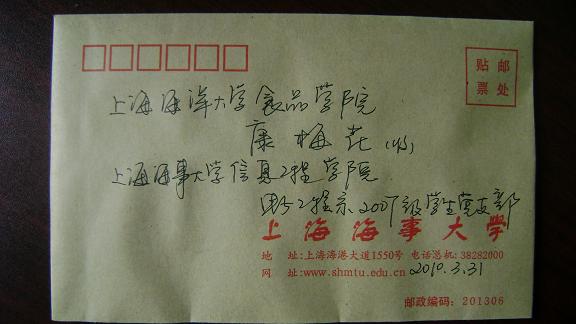 贴 邮
票 处
上海海洋大学食品学院
康梅花(收)
上海海事大学信息工程学院
电子工程系2007级学生党支部
上海海事大学
地 址:上海海港大道1550号 电话总机:38282000
网 址:www.shmtu.edu.cn 2010.3.31
邮政编码:201306